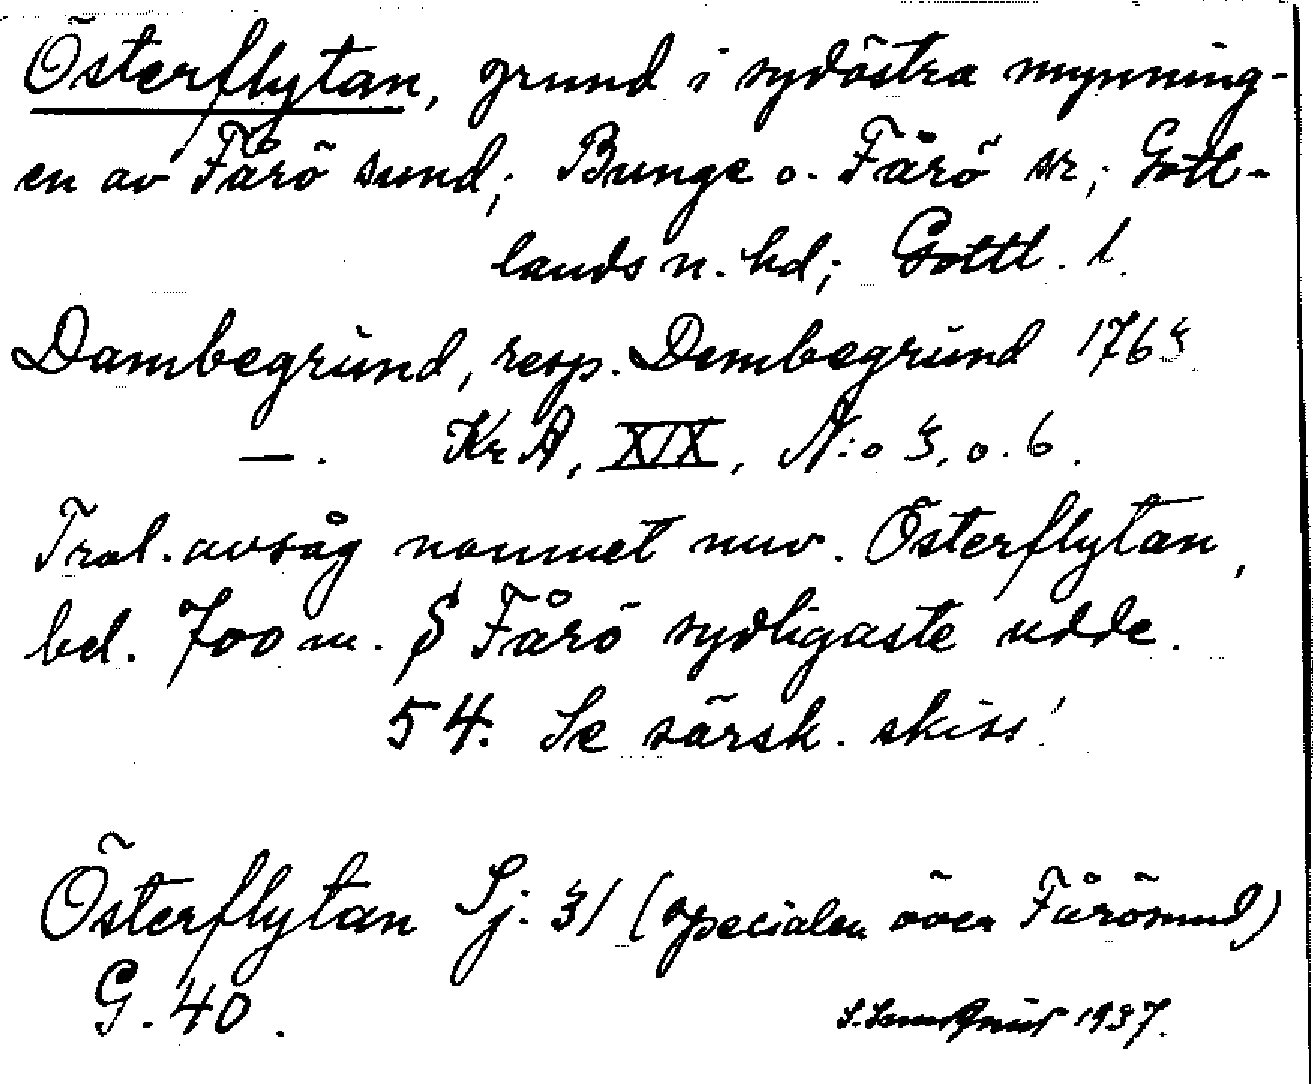 Österflytan, grund i sydöstra mynning-
en av Fårö sund; Bunge o. Fårö sr; Gott-
lands n. hd; Gottl. l.
Dambegrund, resp. Dembegrund 1763
—. KrA, XIX, N:o 3, o. 6.
Trol. avsåg namnet nuv. Österflytan,
bel. 700 m. S Fårö sydligaste udde.
54. Se särsk. skiss!
Österflytan Sj. 31 (specialen över Fårösund)
G. 40.
1937.